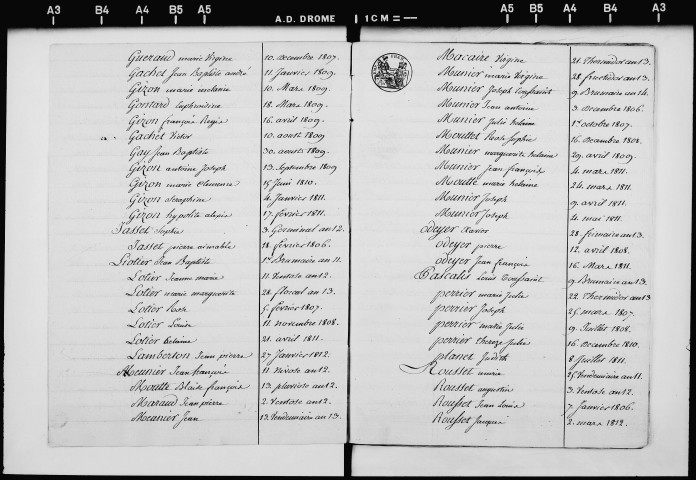 A3 B4 A4 B5 A5 A.D. DROME 1 CM A5 B5 A4 B4 A3
Gueraud marie Virginie 10. Decembre 1807.
Gachet Jean Baptiste andré 11. Janvier 1809.
Gizon marie melanie 10. Mars 1809.
Gontard Euphrosine 18. Mars 1809.
Gizon françois Regis 16. avril 1809.
Gachet Victor 10. aoust 1809
Gay Jean Baptiste 30. aousts 1809.
Gizon antoine Joseph 13. Septembre 1809
Gizon marie Clemence 15. Juin 1810.
Gizon Seraphine 4. Janvier 1811.
Gizon hypolite alexis 17. février 1811.
Jasset Sophie 3. Germinal an 12.
Jasset pierre aimable 18. février 1806.
Liotier Jean Baptiste 1er Brumaire an 11.
Lotier Jeanne marie 11. Ventose an 12.
Lotier marie marguerite 28. floreal an 13.
Lotier 5. février 1807.
Lotier Louise 11. novembre 1808.
Lotier 21. avril 1811.
Lamberton Jean pierre 27. Janvier 1812.
Meunier Jean françois 11. nivose an 12.
Moutte Blaise françois 13. pluviose an 12.
Maraud Jean pierre 2. Ventose an 12.
Meunier Jean 13. Vendemiaire an 13.
Macaire Virginie 21. Thermidor an 13.
Munier marie Virginie 28. fructidor an 13.
Munier Joseph Toussaint 9. Brumaire an 14.
Munier Jean antoine 3. Decembre 1806.
Munier Julie helaine 1er octobre 1807.
Mouttet Rose Sophie 16. Decembre 1808.
Munier marguerite helaine 29. avril 1809.
Munier Jean françois 4. mars 1811.
Moutte marie helaine 24. mars 1811.
Munier Joseph 9. avril 1811.
Munier Joseph 4. mai 1811.
Odeyer Xavier 28. frimaire an 13.
odeyer pierre 12. avril 1808.
odeyer Jean françois 16. Mars 1811.
Pascalis Louis Toussaint 9. Brumaire an 13.
perrier marie Julie 22. Thermidor an 13
perrier Joseph 25. mars 1807.
perrier marie Julie 9. Juillet 1808.
perrier therese Julie 16. Decembre 1810.
planet Judith 8 Juillet 1811.
Rousset marie 25. Vendemiaire an 11.
Rousset augustin 3. Ventose an 12.
Rousset Jean Louis 7. Janvier 1806.
Rousset Jacques 2. mars 1812.